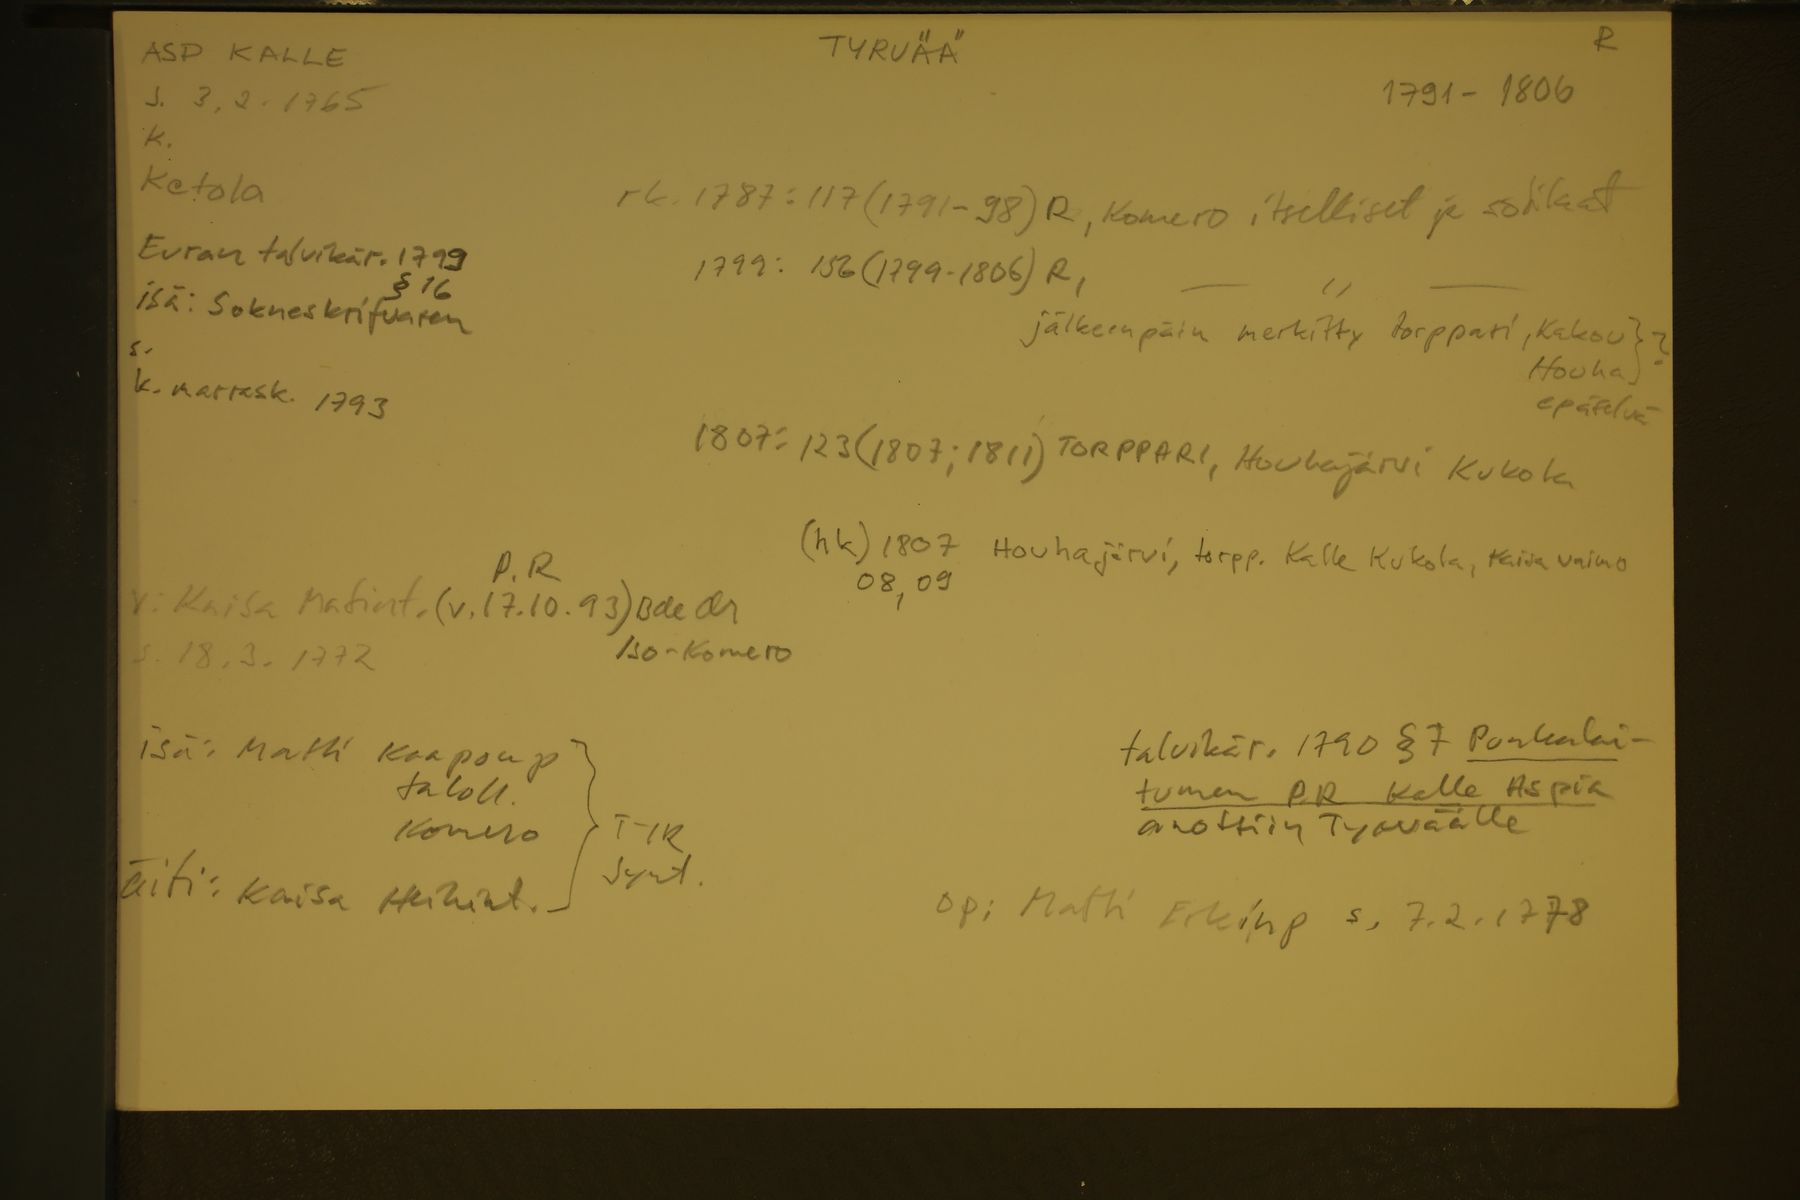 ASP KALLE
TYRVÄÄ
R
s. 3.2.1765
1791 - 1806
k.
Ketola
rk. 1787: 117 (1791-98) R, Komero itselliset ja sotilaat
Euran talvikär. 1799
§ 16
1799: 156 (1799-1806) R, — ,, —
isä: Sokneskrifvaren
jälkeenpäin merkitty torppari, Kakou } ?
Houha
s.
epäselvä
k. marrask. 1793
1807: 123 (1807; 1811) TORPPARI, Houhajärvi Kukola
(hk) 1807 Houhajärvi, torpp. Kalle Kukola, Kaisa vaimo
08, 09
P. R
v: Kaisa Matint. (v. 17.10.93) Bde dr
Iso-Komero
s. 18.3. 1772
isä: Matti Kaaponp
taloll.
Komero
äiti: Kaisa Heikint.
T-IK
synt.
talvikär. 1790 § 7 Punkalai-
tumen P.R Kalle Aspia
anottiin Tyrväälle
op: Matti Erkinp s. 7.2.1778